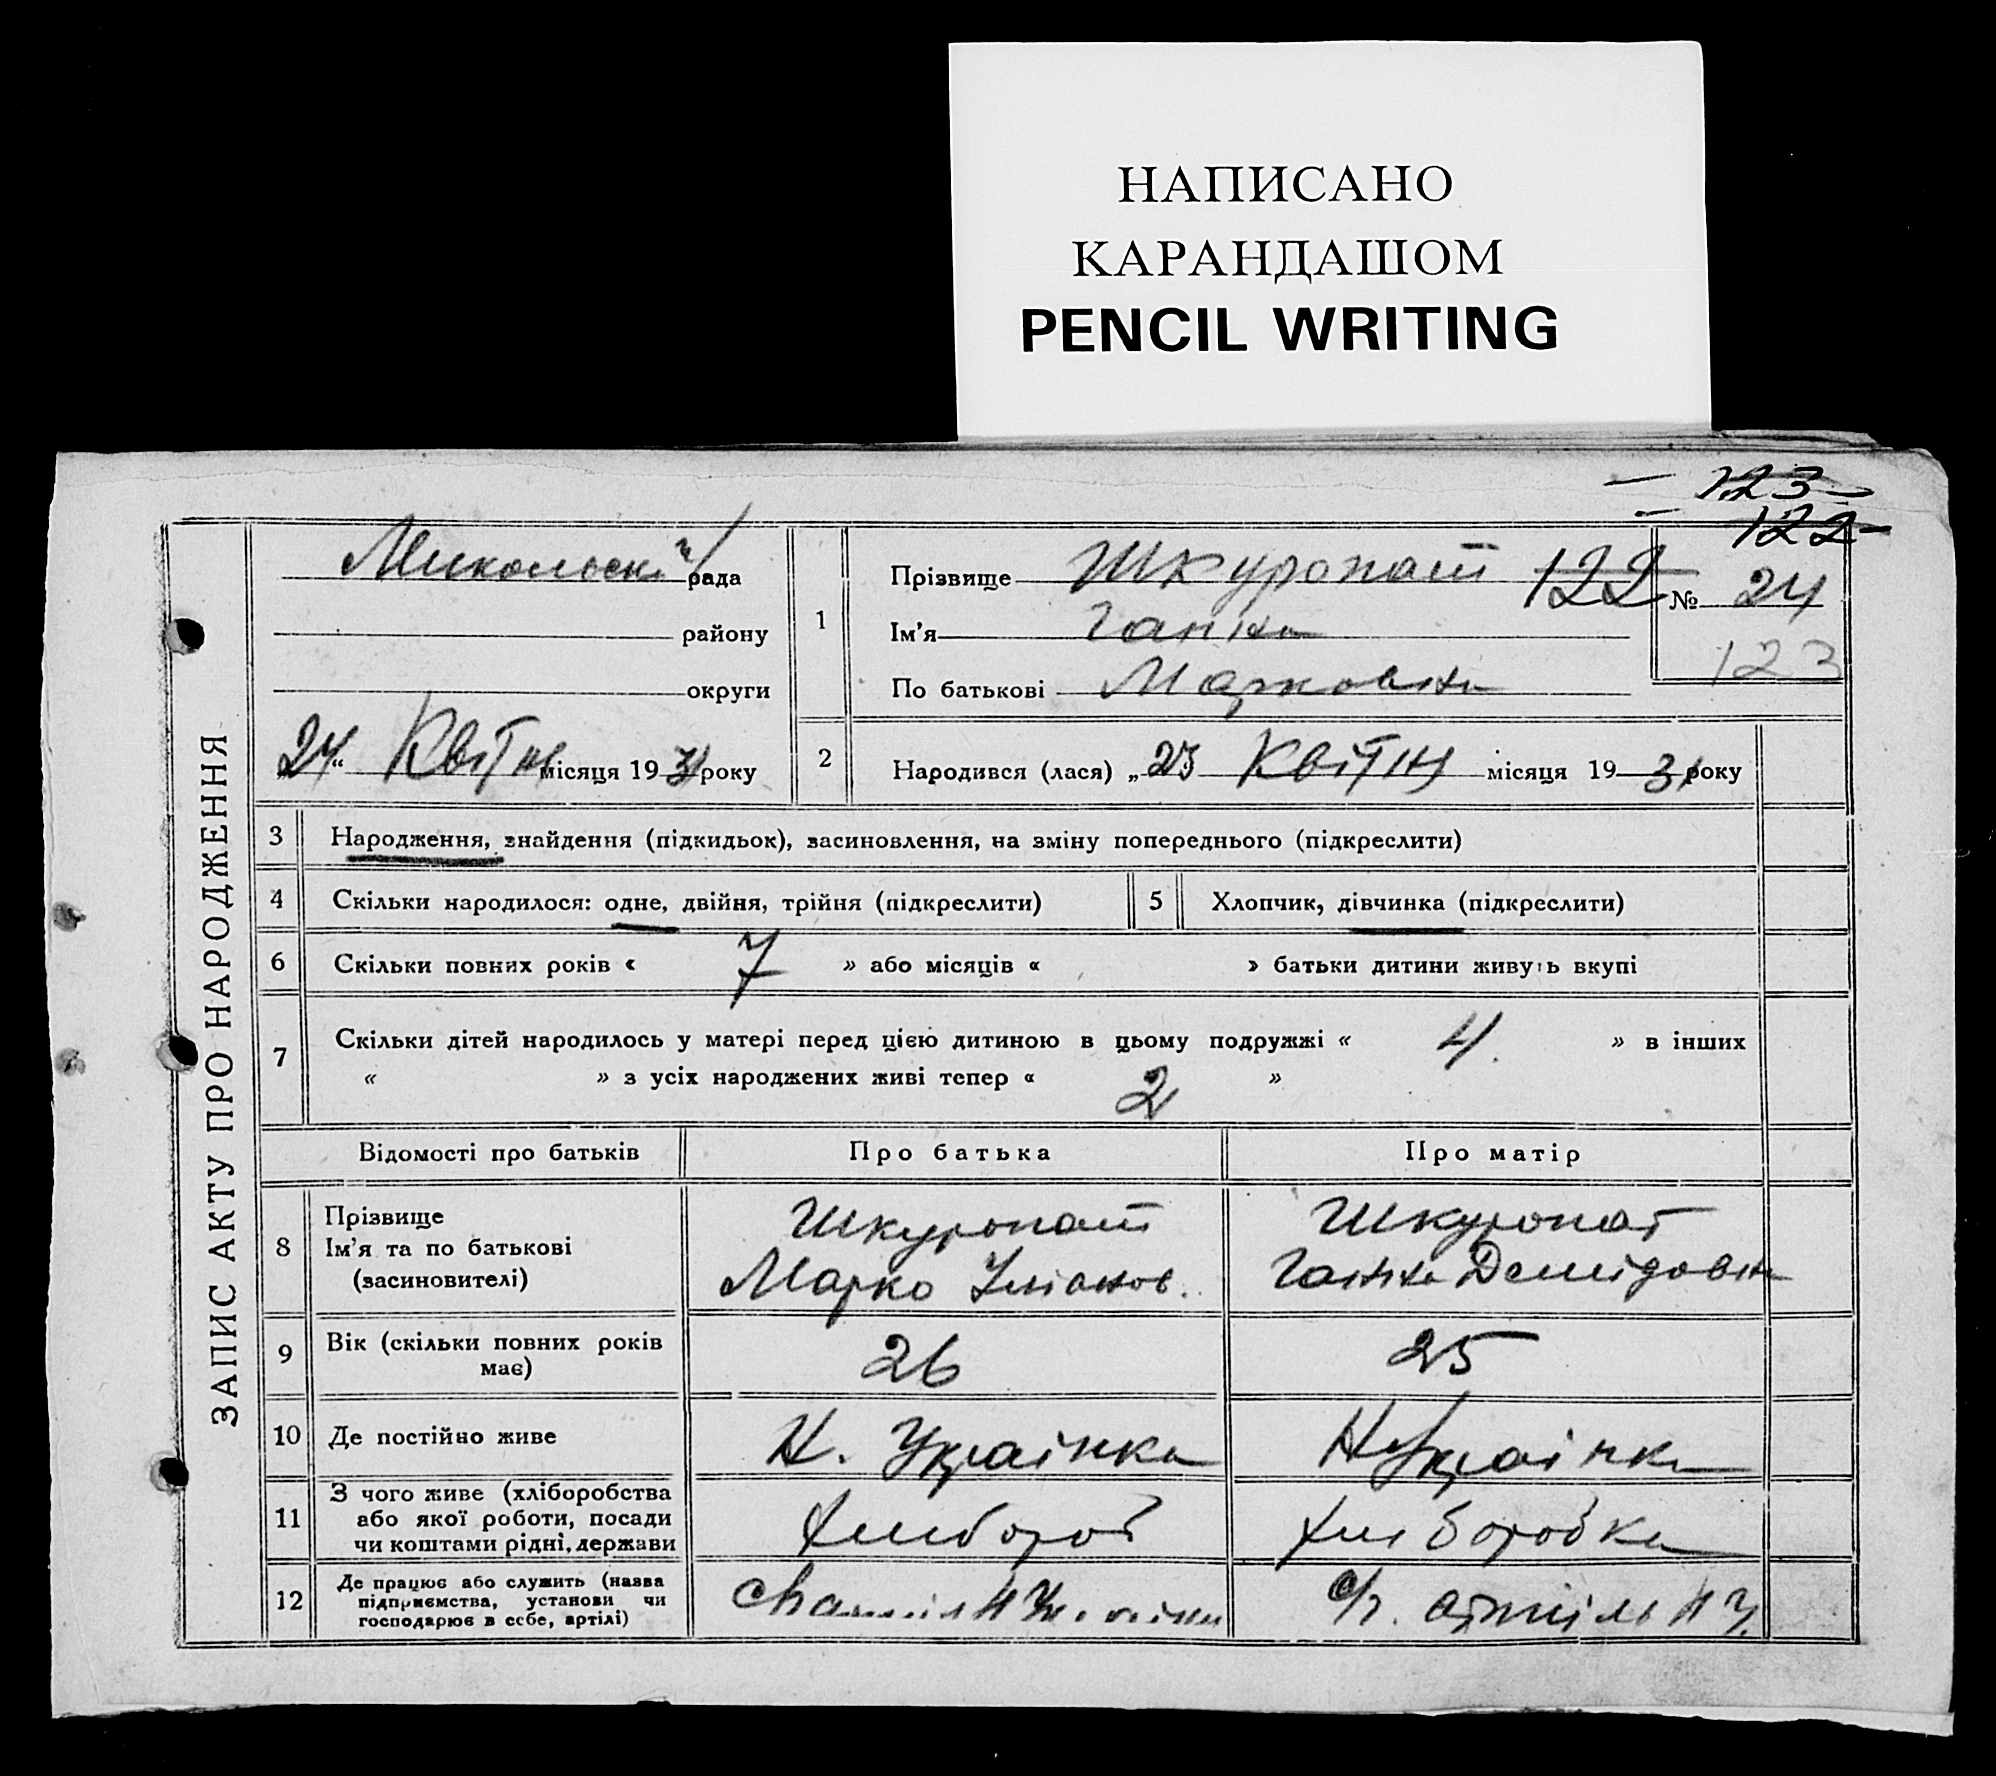 НАПИСАНО
КАРАНДАШОМ
PENCIL WRITING
123
122
ЗАПИС АКТУ ПРО НАРОДЖЕННЯ
рада
району
округи
"24" Квітня місяця 1931 року
1
Прізвище Шкуропат 122
Ім'я Ганна
По батькові Марковна
№ 24
123
2 Народився (лася) „23 Квітня місяця 1931 року
3 Народження, знайдення (підкидьок), засиновлення, на зміну попереднього (підкреслити)
4 Скільки народилося: одне, двійня, трійня (підкреслити) 5 Хлопчик, дівчинка (підкреслити)
6 Скільки повних років « 7 » або місяців « » батьки дитини живуть вкупі
7 Скільки дітей народилось у матері перед цією дитиною в цьому подружжі « 4. » в інших
« » з усіх народжених живі тепер « 2 »
Відомості про батьків Про батька Про матір
8 Прізвище Шкуропат Шкуропат
Ім'я та по батькові Марко Ганна Демідовна
(засиновителі)
9 Вік (скільки повних років має) 26 25
10 Де постійно живе Н. Українка Н Українка
11 З чого живе (хліборобства
або якої роботи, посади
чи коштами рідні, держави
Хлибороб Хлиборобка
12 Де працює або служить (назва
підприємства, установи чи
господарює в себе, артілі)
с/г. артіль Н У.